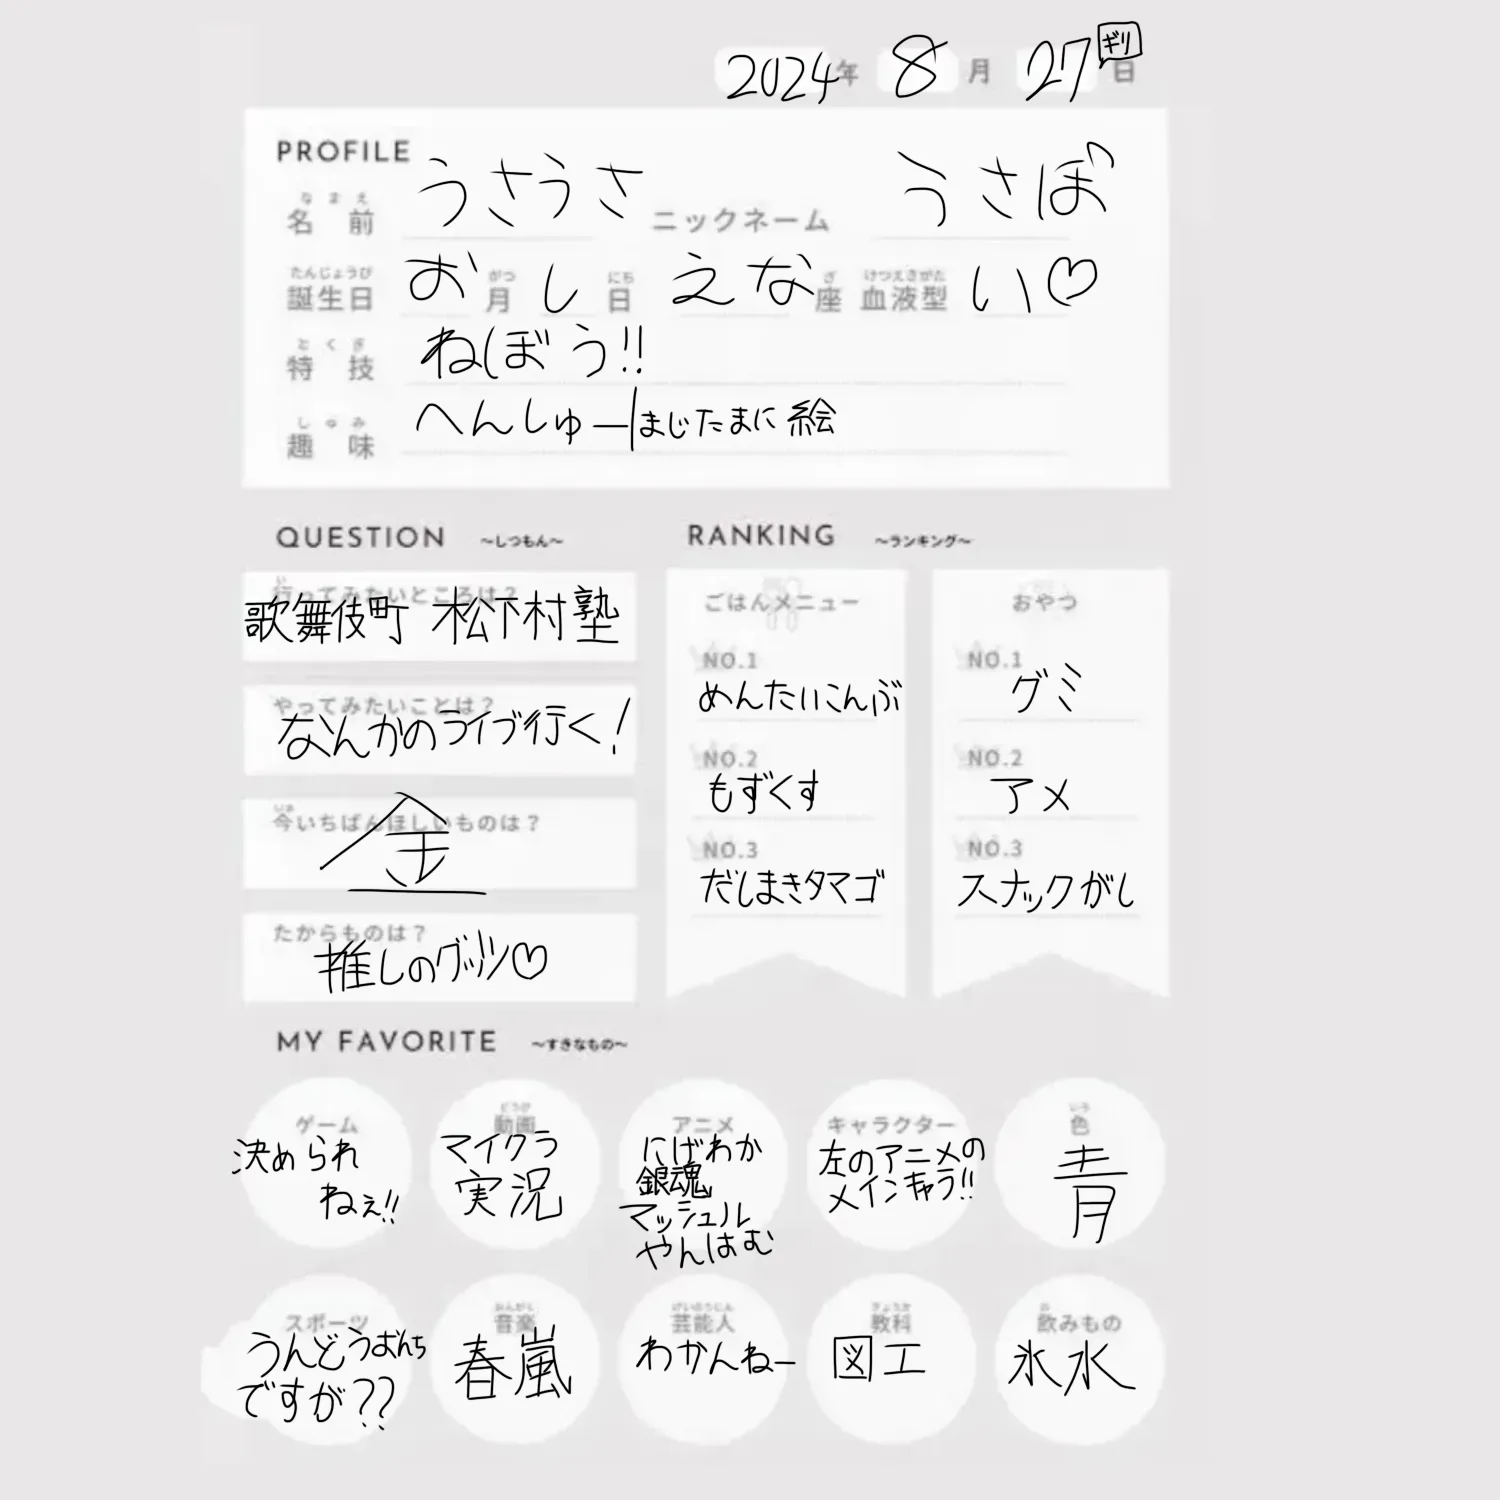 2024年 8月 27日 ギリ
PROFILE
なまえ
名前 うさうさ ニックネーム うさぼ
たんじょうび がつ にち ざ けつえきがた
誕生日 お月 し日 えな座 血液型 い♡
とくぎ
特技 ねぼう!!
しゅみ
趣味 へんしゅー|まじたまに絵
QUESTION ～しつもん～
い
行ってみたいところは？
歌舞伎町 松下村塾
やってみたいことは？
なんかのライブ行く！
いま
今いちばんほしいものは？
金
たからものは？
推しのグッツ♡
RANKING ～ランキング～
ごはんメニュー
NO.1
めんたいこんぶ
NO.2
もずくす
NO.3
だしまきタマゴ
おやつ
NO.1
グミ
NO.2
アメ
NO.3
スナックがし
MY FAVORITE ～すきなもの～
ゲーム
決められ
ねぇ!!
どうが
動画
マイクラ
実況
アニメ
にげわか
銀魂
マッシュル
やんはむ
キャラクター
左のアニメの
メインキャラ!!
いろ
色
青
スポーツ
うんどうおんち
ですが??
おんがく
音楽
春嵐
げいのうじん
芸能人
わかんねー
きょうか
教科
図工
の
飲みもの
氷水